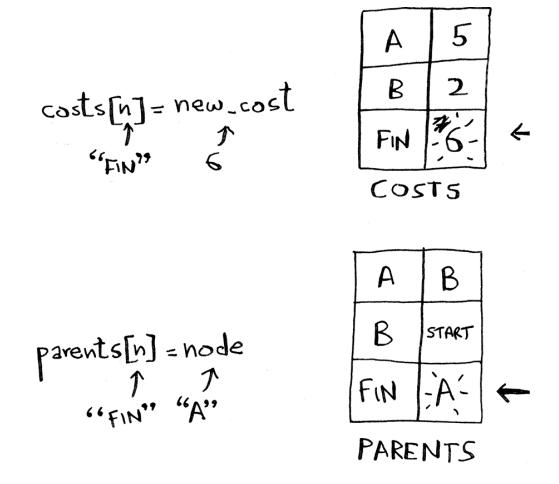 costs[n] = new_cost
"FIN" 6
A 5
B 2
FIN 6
COSTS
parents[n] = node
"FIN" "A"
A B
B START
FIN A
PARENTS